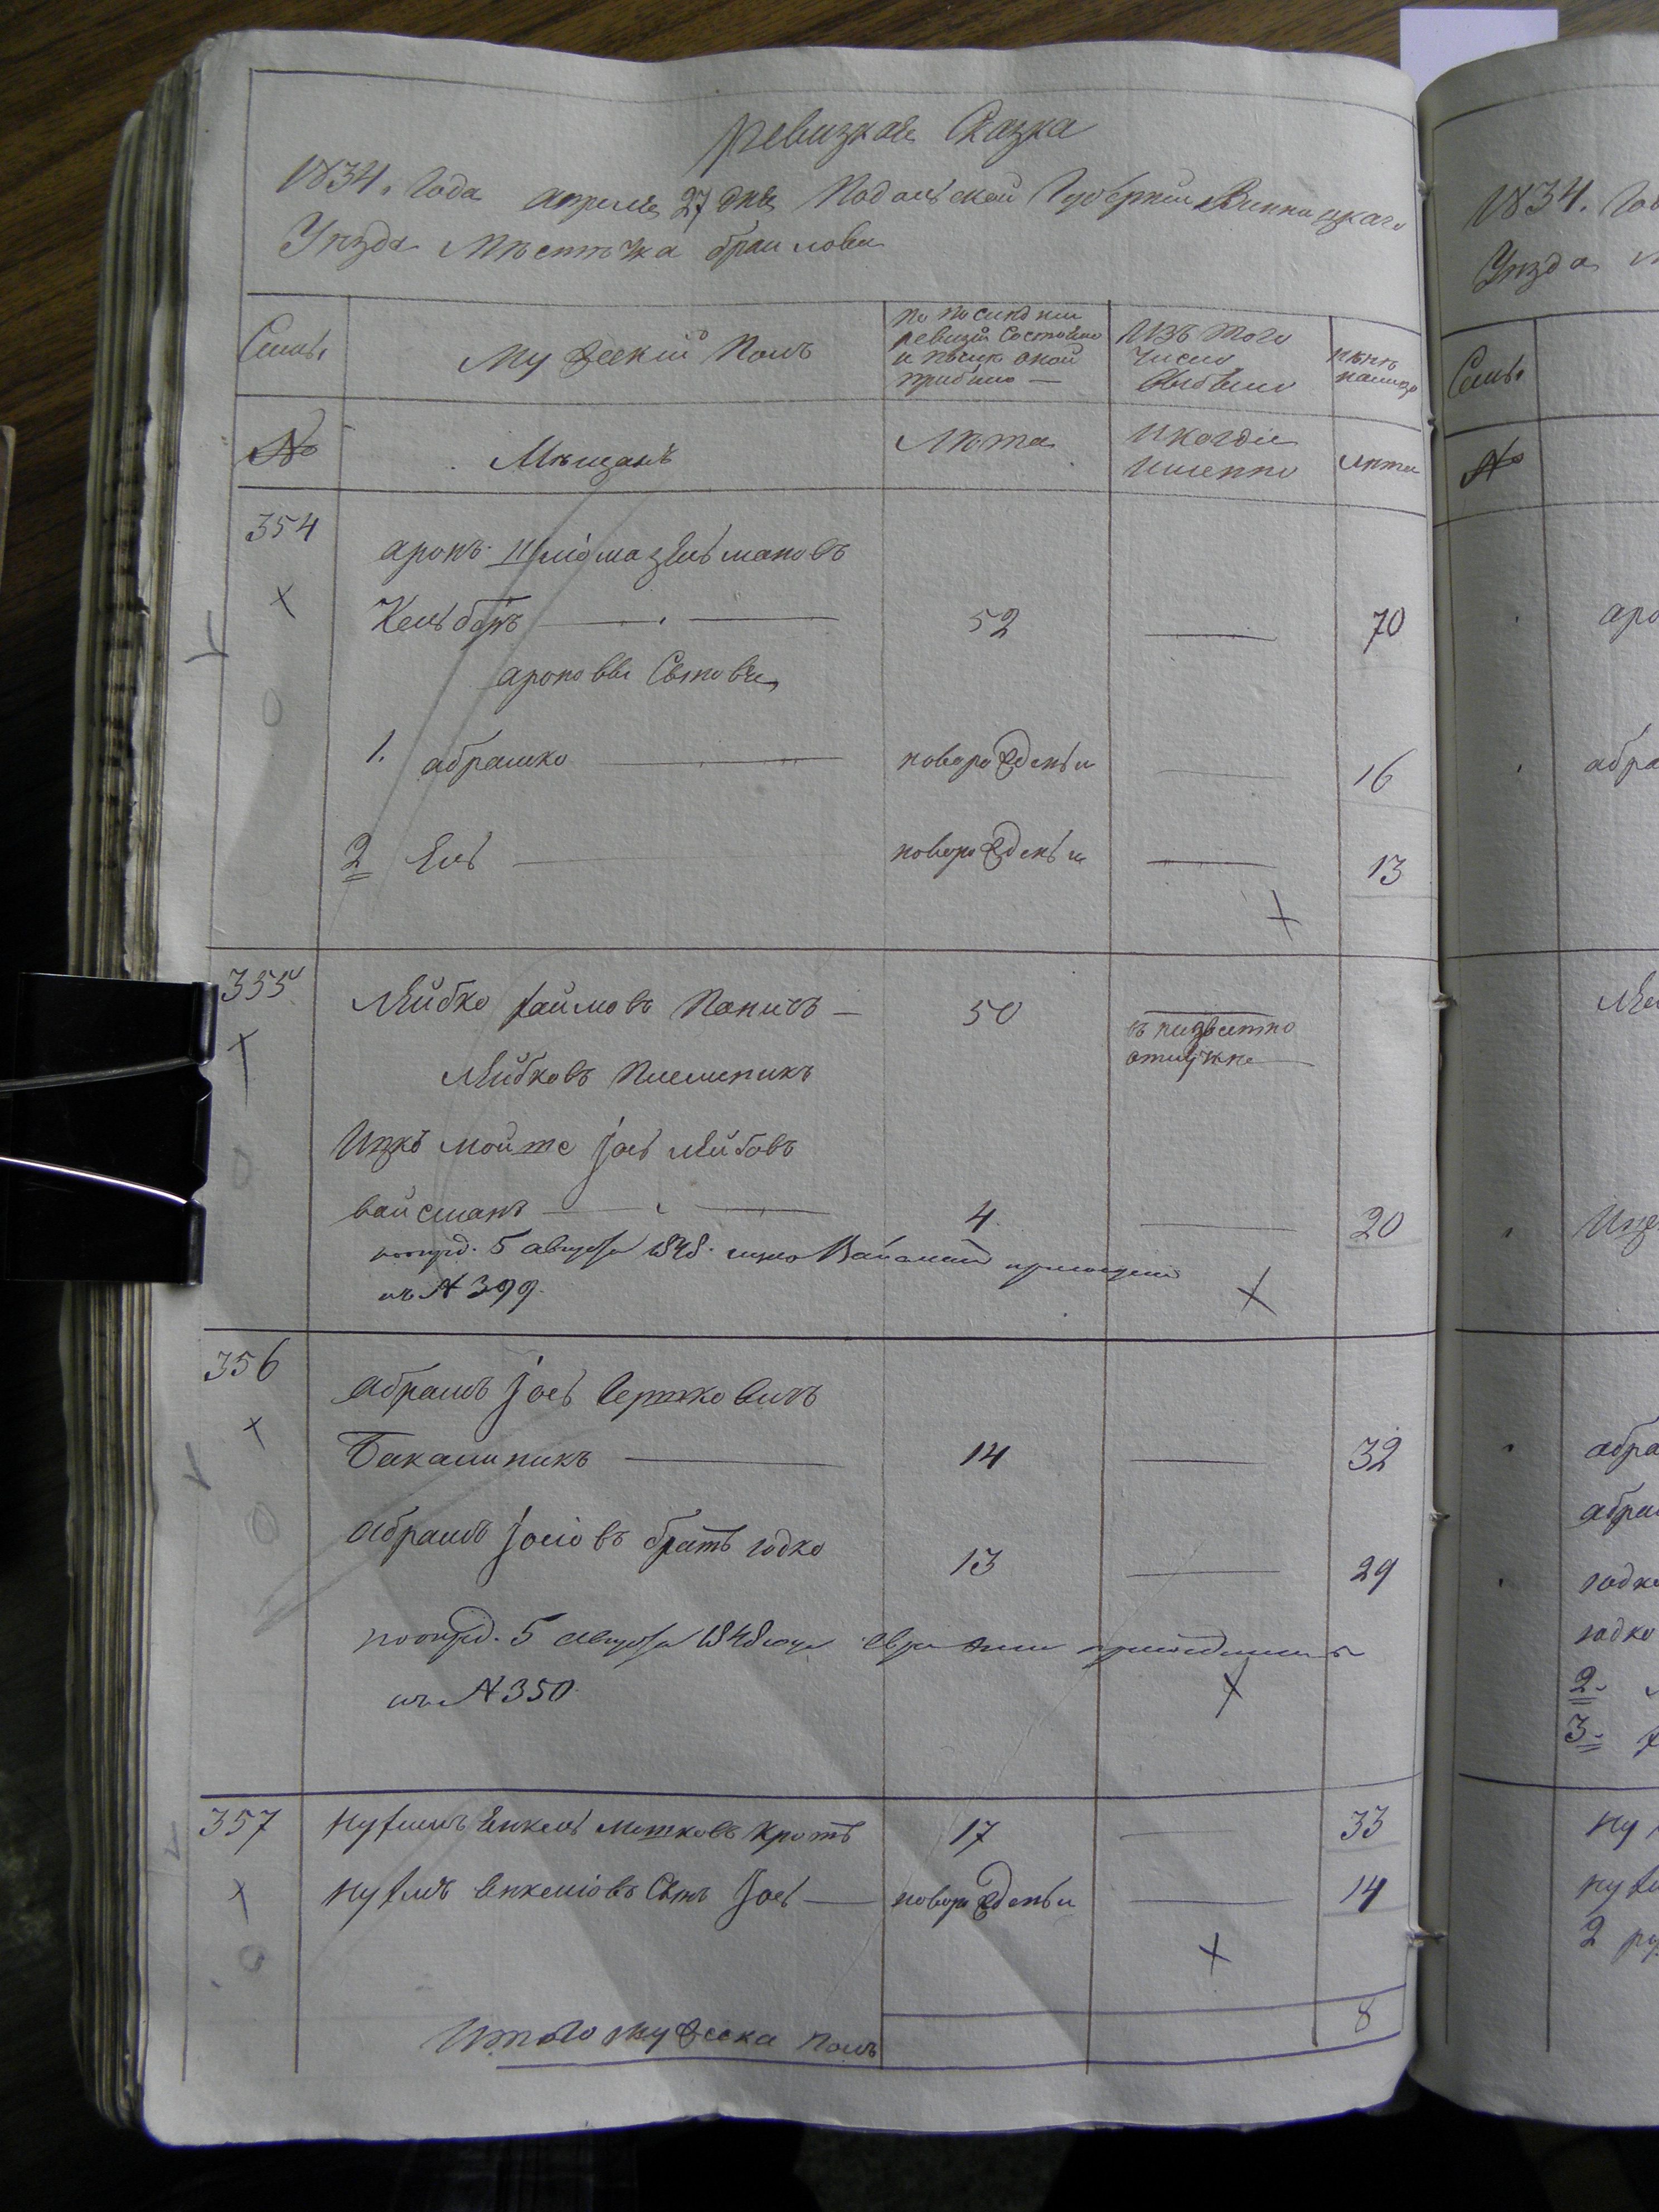 Ревизкая Сказка
1834. Года апреля 27 дня Подольской Губернии Винницкаго
Уезда Местечка браилова
Семьи
Мужеский Полъ
По последней
ревизии Состояло
и после оной
прибыло —
Изъ того
Числа
Выбыло
ныне
налицо
№
Мещанъ
Лета
И когда
Именно
лета
354
аронъ Шліома Зельмановъ
Кельберъ
52
70
ароновы Сыновья
1. абрашко
новорожденъи
16
2 Ель
новорожденъи
13
355
Лейбко хаимовъ
50
въ неизвестно
отлучке
Лейбковъ Племеникъ
Ицко мойше Іось лейбовъ
вайсманъ
4
20
5 августа 1848. Вайсман
къ № 399.
356
абрамъ Іось Бершковичъ
Бакалиникъ
14
32
абрамъ Іосіовъ братъ юдко
13
29
5 августа 1848 года
къ № 350.
357
Нухимъ Енкель Мошковъ Кротъ
17
33
Нухимъ Енкеліовъ Сынъ Іось
новорожденъи
14
Итого мужеска Полъ
8
1834. Год
Уезда
Семьи
№
аро
абра
Лей
Ице
абра
абрам
юдко
юдко
2.
3.
Ну
Нухи
2